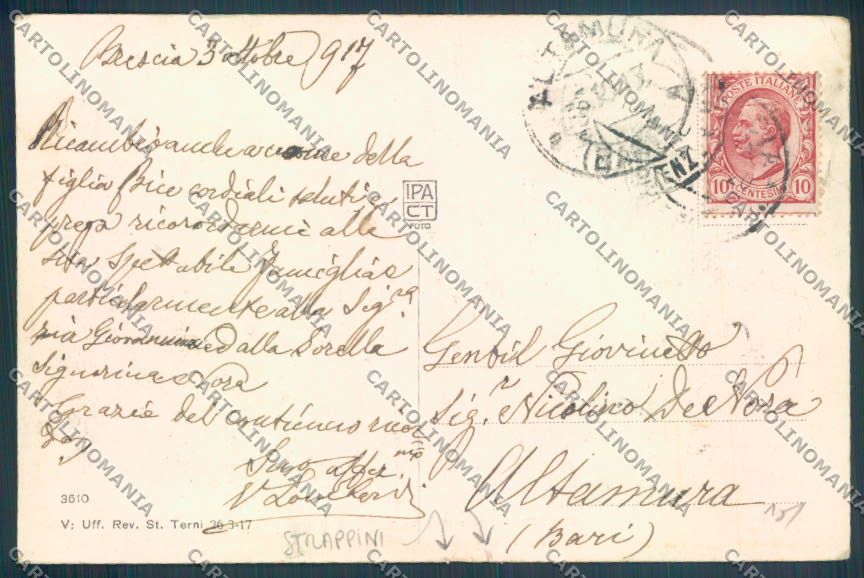 Brescia 3 ottobre 917
Ricambio anche a nome della
figlia Bice cordiali saluti e
prega ricordarmi alla
sua Spettabile famiglia e
particolarmente alla Sig.ra
zia Giovannina ed alla Sorella
Signorina Nora
Grazie del continuo
Suo affez mo
IPA
CT
FOTO
3610
V: Uff. Rev. St. Terni 26-3-17
STRAPPINI
ALTAMURA
POSTE ITALIANE
10 CENTESIMI 10
Gentil Giovinetto
Sig.r Nicolino De Nora
Altamura
(Bari)
CARTOLINOMANIA